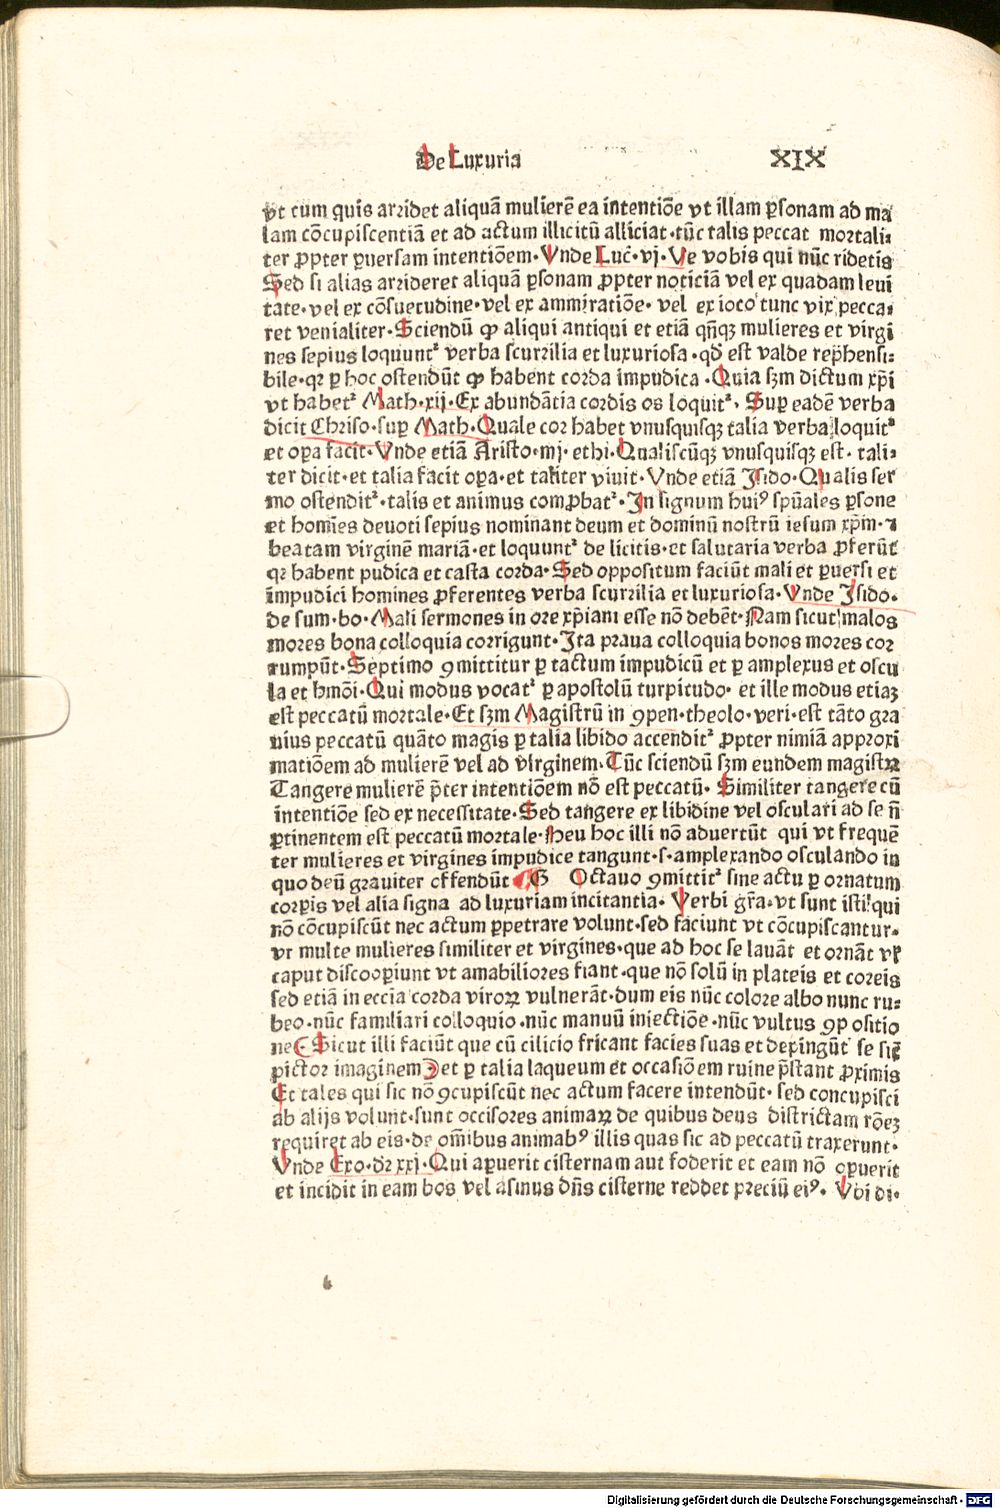 De Luxuria XIX
vt cum quis arridet aliquā mulierē ea intentiōe vt illam ꝑsonam ad ma
lam cōcupiscentiā et ad actum illicitū alliciat·tūc talis peccat mortali⸗
ter ꝓpter ꝑuersam intentiōem·Vnde Luc̄·vj·Ve vobis qui nūc ridetis
Sed si alias arrideret aliquā ꝑsonam ꝓpter noticiā vel ex quadam leui
tate·vel ex cōsuetudine·vel ex ammiratiōe· vel ex ioco tunc vix pecca⸗
ret venialiter·Sciendū ꝙ aliqui antiqui et etiā qn̄qꝫ mulieres et virgi
nes sepius loquunt᷑ verba scurrilia et luxuriosa·qd̄ est valde rep̄hensi⸗
bile·qꝛ ꝑ hoc ostendūt ꝙ habent corda impudica·Quia sꝫm dictum xp̄i
vt habet᷑ Math·xij·Ex abundātia cordis os loquit᷑·Suꝑ eadē verba
dicit Chriso·suꝑ Math·Quale cor habet vnusquisqꝫ talia verba loquit᷑
et oꝑa facit·Vnde etiā Aristo·iiij·ethi·Qualiscūqꝫ vnusquisqꝫ est·tali⸗
ter dicit·et talia facit oꝑa·et taliter viuit·Vnde etiā Isido·Qualis ser
mo ostendit᷑·talis et animus comꝓbat᷑·In signum huiꝰ spūales ꝑsone
et homīes deuoti sepius nominant deum et dominū nostrū iesum xp̄m·⁊
beatam virginē mariā·et loquunt᷑ de licitis·et salutaria verba ꝓferūt
qꝛ habent pudica et casta corda·Sed oppositum faciūt mali et ꝑuersi et
īmpudici homines ꝓferentes verba scurrilia et luxuriosa·Vnde Isido·
de sum·bo·Mali sermones in ore xp̄iani esse nō debēt·Nam sicut malos
mores bona colloquia corrigunt·Ita praua colloquia bonos mores cor
rumpūt·Septimo ꝯmittitur ꝑ tactum impudicū et ꝑ amplexus et oscu
la et hmōi·Qui modus vocat᷑ ꝑ apostolū turpitudo·et ille modus etiaꝫ
est peccatū mortale·Et sꝫm Magistrū in ꝯpen·theolo·veri·est tāto gra
uius peccatū quāto magis ꝑ talia libido accendit᷑ ꝓpter nimiā approxi
matiōem ad mulierē vel ad virginem·Tūc sciendū sꝫm eundem magistꝝ
Tangere mulierē p̄ter intentiōem nō est peccatū·Similiter tangere cū
intentiōe sed ex necessitate·Sed tangere ex libidine vel osculari ad se n̄
ꝑtinentem est peccatū mortale·Heu hoc illi nō aduertūt qui vt frequē
ter mulieres et virgines impudice tangunt·s·amplexando osculando in
quo deū grauiter offendūt G Octauo ꝯmittit᷑ sine actu ꝑ ornatum
corꝑis vel alia signa ad luxuriam incitantia·Verbi gr̄a·vt sunt isti qui
nō cōcupiscūt nec actum ꝑpetrare volunt·sed faciunt vt cōcupiscantur·
vt multe mulieres similiter et virgines·que ad hoc se lauāt et ornāt vꝉ
caput discooꝑiunt vt amabiliores fiant·que nō solū in plateis et coreis
sed etiā in eccīa corda viroꝝ vulnerāt·dum eis nūc colore albo nunc ru⸗
beo·nūc familiari colloquio·nūc manuū iniectiōe·nūc vultus ꝯpositio
ne(·Sicut illi faciūt que cū cilicio fricant facies suas et depingūt se sic̄
pictor imaginem) et ꝑ talia laqueum et occasiōem ruine p̄stant ꝓximis
Et tales qui sic nō ꝯcupiscūt nec actum facere intendūt·sed concupisci
ab alijs volunt·sunt occisores animaꝝ de quibus deus districtam rōeꝫ
requiret ab eis·de om̄ibus animabꝰ illis quas sic ad peccatū traxerunt·
Vnde Exo·dꝛ xxj·Qui aꝑuerit cisternam aut foderit et eam nō oꝑuerit
et incidit in eam bos vel asinus dn̄s cisterne reddet preciū eiꝰ·Vbi di·
Digitalisierung gefördert durch die Deutsche Forschungsgemeinschaft - DFG